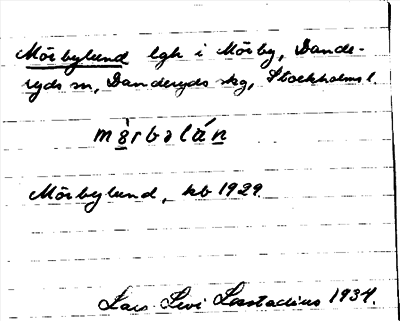 Mörbylund lgh i Mörby, Dande-
ryds sn, Danderyds skg, Stockholms l.
mö̀rbəlún
Mörbylund, kb 1929.
Lars-Levi Læstadius 1934.